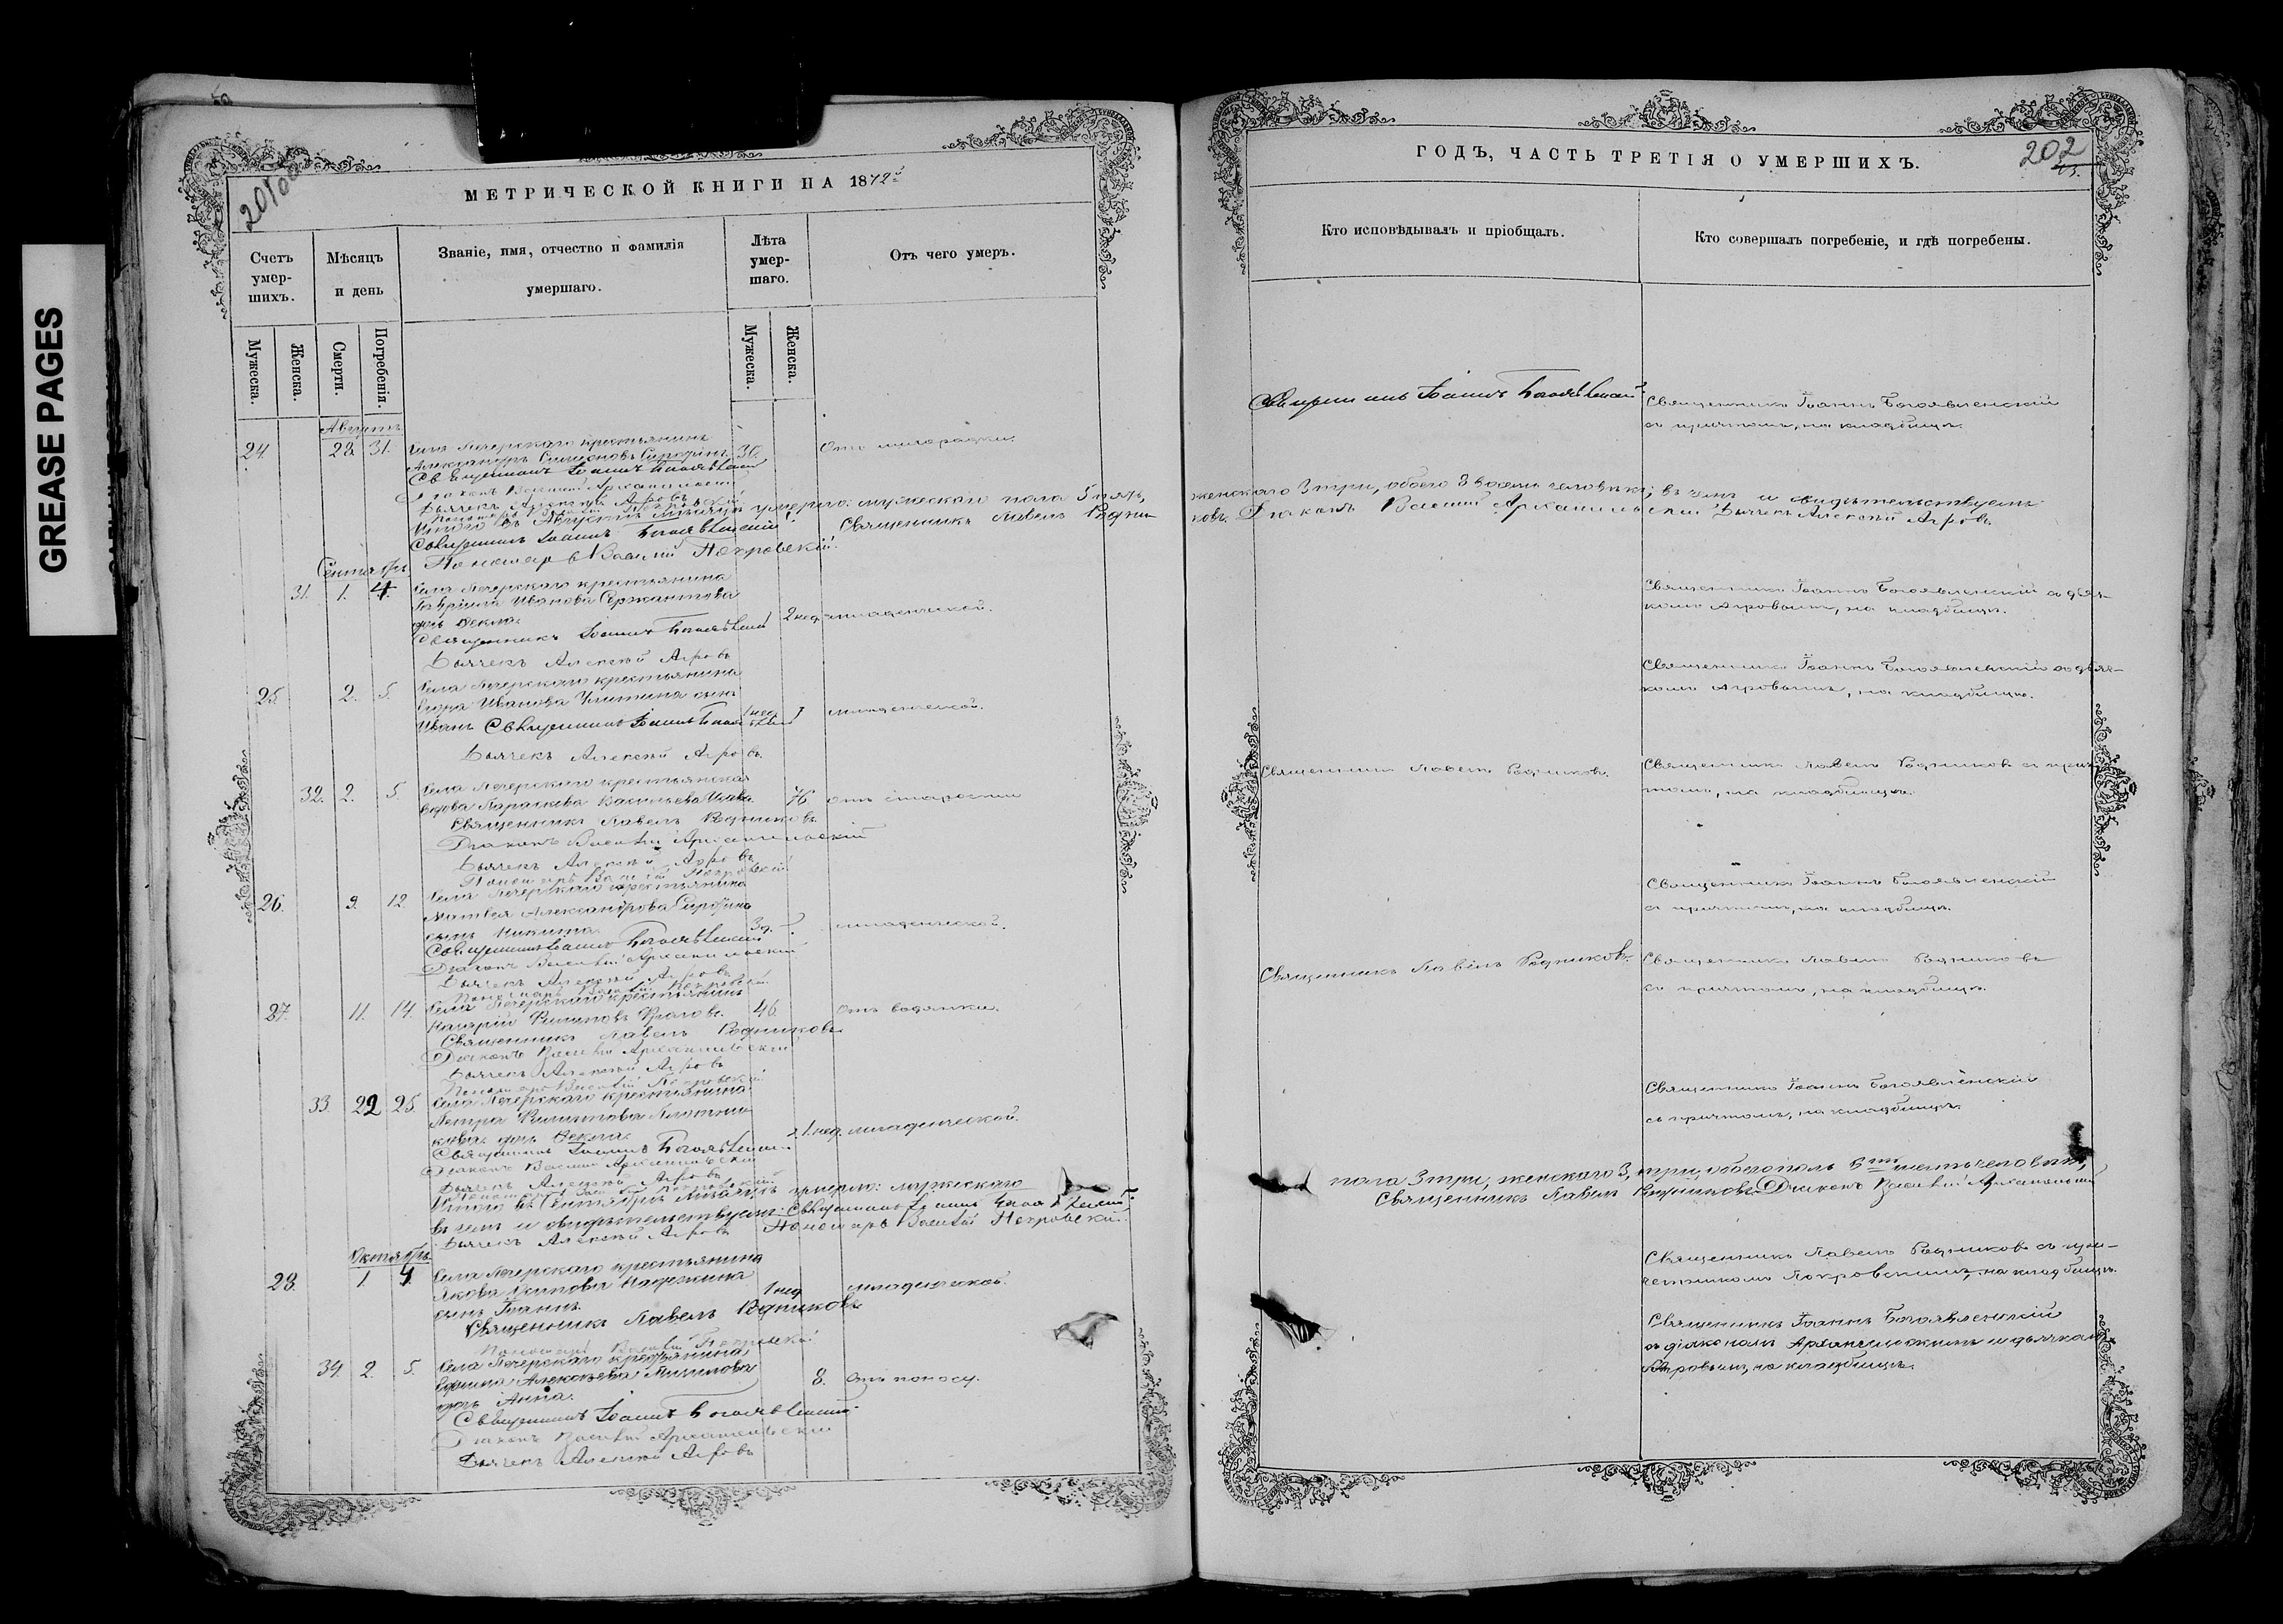 GREASE PAGES
МЕТРИЧЕСКОЙ КНИГИ НА 1872
Счетъ умер-шихъ.
Мѣсяцъ и день
Званіе, имя, отчество и фамилія умершаго.
Лѣта умер-шаго.
Отъ чего умеръ.
Мужеска.
Женска.
Смерти.
Погребенія.
Мужеска.
Женска.
Августъ
24. 28. 31. Села Печерскаго крестьянинъ 36. Отъ лихорадки.
Александръ Симеоновъ Сиротинъ
Священникъ Іоаннъ Богоявленскій
Діаконъ Василій Архангельскій
Дьячекъ Алексѣй Агровъ
Пономарь Василій Покровскій
Итого въ Августѣ мѣсяцѣ умерло: мужескаго пола 5 пять,
Священникъ Іоаннъ Богоявленскій Священникъ Павелъ Родни-
Пономарь Василій Покровскій.
Сентябрь
31. 1. 4. Села Печерскаго крестьянина
Гавріила Иванова Сержантова
дочь Фекла. 2 нед. младенческой.
Священникъ Іоаннъ Богоявленскій
Дьячекъ Алексѣй Агровъ
25. 2. 5. Села Печерскаго крестьянина
Егора Иванова сынъ
Иванъ Священникъ Іоаннъ 1 нед. младенческой.
Дьячекъ Алексѣй Агровъ.
32. 2. 5. Села Печерскаго крестьянская
вдова Параскева Васильева 76. отъ старости
Священникъ Павелъ Родниковъ
Діаконъ Василій Архангельскій
Дьячекъ Алексѣй Агровъ
Пономарь Василій Покровскій
26. 9. 12. Села Печерскаго крестьянина
Матвея Александрова Сиротина
сынъ Никита. младенческой.
Священникъ Іоаннъ Богоявленскій
Діаконъ Василій Архангельскій
Дьячекъ Алексѣй Агровъ
Пономарь Василій Покровскій
27. 11. 14. Села Печерскаго крестьянинъ 46. Отъ водянки.
Филиповъ
Священникъ Павелъ Родниковъ
Діаконъ Василій Архангельскій
Дьячекъ Алексѣй Агровъ
Пономарь Василій Покровскій
33. 22 25. Села Печерскаго крестьянина
Петра Филиппова Плотни-
кова дочь Фекла. 1. нед. младенческой.
Священникъ Іоаннъ Богоявленскій
Діаконъ Василій Архангельскій
Дьячекъ Алексѣй Агровъ
Пономарь Василій Покровскій
Итого въ Сентябрѣ мѣсяцѣ умерло: мужескаго
въ чемъ и свидѣтельствуемъ: Священникъ Іоаннъ Богоявленскій
Дьячекъ Алексѣй Агровъ Пономарь Василій Покровскій.
Октябрь
28. 1 4. Села Печерскаго крестьянина
Якова Осипова Надежкина
сынъ Іоаннъ. 1 нед младенческой.
Священникъ Павелъ Родниковъ
Пономарь Василій Покровскій
34. 2. 5. Села Печерскаго крестьянина
Алексѣева
дочь Анна. 8. Отъ поносу.
Священникъ Іоаннъ Богоявленскій
Діаконъ Василій Архангельскій
Дьячекъ Алексѣй Агровъ
ГОДЪ, ЧАСТЬ ТРЕТІЯ О УМЕРШИХЪ. 202
Кто исповѣдывалъ и пріобщалъ.
Кто совершалъ погребеніе, и гдѣ погребены.
Священникъ Іоаннъ Богоявленскій Священникъ Іоаннъ Богоявленскій
съ причтомъ, на кладбищѣ.
женскаго 3 три, обоего 8 восемь человѣкъ; въ чемъ и свидѣтельствуемъ
ковъ. Діаконъ Василій Архангельскій Дьячекъ Алексѣй Агровъ.
Священникъ Іоаннъ Богоявленскій съ дьяч-
комъ Агровымъ, на кладбищѣ.
Священникъ Іоаннъ Богоявленскій съ дьяч-
комъ Агровымъ, на кладбищѣ.
Священникъ Павелъ Родниковъ. Священникъ Павелъ Родниковъ съ прич-
томъ, на кладбищѣ.
Священникъ Іоаннъ Богоявленскій
съ причтомъ, на кладбищѣ.
Священникъ Павелъ Родниковъ. Священникъ Павелъ Родниковъ
съ причтомъ, на кладбищѣ.
Священникъ Іоаннъ Богоявленскій
съ причтомъ, на кладбищѣ.
пола 3 три, женскаго 3, три, обоего полъ 6 шесть человѣкъ,
Священникъ Павелъ Родниковъ Діаконъ Василій Архангельскій
Священникъ Павелъ Родниковъ съ при-
четникомъ Покровскимъ, на кладбищѣ.
Священникъ Іоаннъ Богоявленскій
съ діакономъ Архангельскимъ и дьячкомъ
Агровымъ, на кладбищѣ.